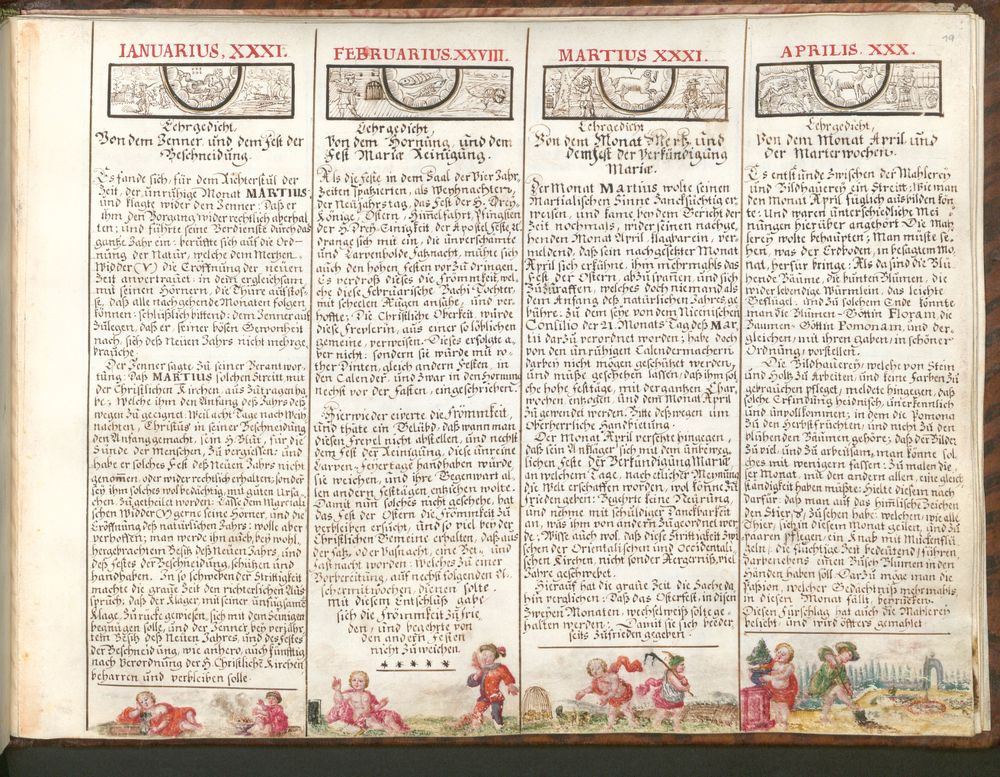 19
IANUARIUS, XXXI.
Lehrgedicht,
Von dem Jenner und dem fest der
Beschneidung.
Es fande sich, für dem Richterstül der
Zeit, der unrühige Monat MARTIUS
und klagte wider den Jenner: Daß er
ihm den Vorgang widerrechtlich aberhal
ten; und führte seine Verdienste durch das
gantze Jahr ein: beruffte sich auf die Ord-
nung der Natur, welche dem Mertzen
Widder (♈) die Eröffnung der neuen
Zeit anvertrauet: in dem er gleichsam
mit seinen Hörnern, die Thüre aufstos-
se, daß alle nachgehende Monaten folgen
können: schlüßlich bittend: dem Jenner auf
Zulegen, daß er, seiner bösen Gewonheit
nach, sich deß Neuen Jahrs nicht mehr ge-
brauche.
Der Jenner sagte zu seiner Verantwor-
tung, daß MARTIUS solchen Streitt mit
der Christlichen Kirchen auszutragen ha
be; Welche ihm den Anfang deß Jahrs deß
wegen zu geeignet, Weil acht Tage nach Weih
nachten, Christus in seiner Beschneidung
den Anfang gemacht, sein H. Blut, für die
Sünde der Menschen, zu vergiessen: und
habe er solches Fest deß Neuen Jahrs nicht
genomen, oder widerrechtlich erhalten, sonder
sey ihm solches wolbedächtig, mit guten Ursa-
chen zugetheilet worden: Lasse dem Martiali
schen Widder (♈) gerne seine Hörner, und die
Eröffnung deß natürlichen Jahrs: wolle aber
verhoffen; man werde ihn auch, bey wohl
hergebrachtem Besitz deß Neuen Jahrs, und
deß Festes der Beschneidung, schützen und
handhaben. In so schwebender Strittigkeit
machte die graue Zeit den richterlichen Aus
spruch, daß der Kläger, mit seiner unfügsame
Klage, zurück gewiesen, sich mit dem Seinigen
begnügen solle, und der Jenner, bey verjähr
tem Besitz deß Neuen Jahres, und des Festes
der Beschneidung, wie anhero, auch künfftig
nach Verordnung der H. Christlichen Kirchen
beharren und verbleiben solle.
FEBRUARIUS. XXVIII.
Lehrgedicht,
Von dem Hornung, und dem
Fest Mariæ Reinigung.
Als die feste in dem Saal der Vier Jahr,
Zeiten spatzierten, als Weyhnachten,
der Neujahrstag, das Fest der H. Drey-
Könige, Ostern, Himmelfahrt, Pfingsten
der H. Drey-Einigkeit, der Apostel Feste
drange sich mit ein, die unverschämte
und Larvenholde Faßnacht, mühte sich
auch den hohen Festen vor zu dringen.
Es verdroß dieses die Frömmigkeit, wel-
che diese Februarische Zucht-Tochter,
mit scheelen Augen ansahe, und ver-
hoffte: Die Christliche Oberkeit, würde
diese Frevlerin, aus einer so löblichen
gemeine, verweisen. Dieses erfolgte a-
ber nicht: sondern sie würde mit ro-
ther Dinten, gleich andern Festen, in
den Calender und zwar in den Hornung
nechst vor der Fasten, eingeschrieben.
Hierwieder eiverte die Frömmikeit,
und thäte ein Gelübd, daß wann man
diesen Frevel nicht abstellen, und nechst
dem Fest der Reinigung, diese unreine
Larven-Feyertage handhaben würde,
sie weichen, und ihre Gegenwart al-
len andern Festtägen entziehen wolte.
Damit nun solches nicht geschehe, hat
das Fest der Ostern die Frömmikeit zu
verbleiben ersucht, und so viel bey der
Christlichen Gemeine erhalten, daß aus
der Faß, oder Vasnacht, eine Bet- und
Fastnacht worden: Welches zu einer
Vorbereitung, auf nechst folgenden A-
schermittwochen, dienen solte.
mit diesem Entschluß gabe
sich die Frömmikeit zu frie
den, und begehrte von
den andern Festen
nicht zu weichen.
MARTIUS XXXI.
Lehrgedicht
Von dem Monat Mertz und
dem fest der Verkündigung
Mariæ.
Der Monat Martius wolte seinen
Martialischen Sinne zancksüchtig er-
weisen, und kame bey dem Gericht der
Zeit nochmals, wider seinen nachge-
henden Monat April, klagbar ein, ver-
meldend, daß sein nachgesetzter Monat
April sich erkühne, ihm mehrmals das
Fest der Ostern, abzuspannen, und sich
zuzuraffen, welches doch niemand als
dem Anfang deß natürlichen Jahres, ge
bühre, zu dem seye von dem Nicenischen
Consilio der 21. Monats Tag deß Mar,
tii darzu verordnet worden; habe doch
von den unrühigen Calendermachern
darbey nicht mögen geschützet werden,
und müsse geschehen lassen, daß ihm sol
che hohe Festtäge, mit der gantzen Char,
wochen, entzogen, und dem Monat April
zu gewendet werden. Bitte deßwegen um
Oberherrliche Handbietung.
Der Monat April versetzte hingegen,
daß sein Ankläger sich mit dem unbeweg,
lichen Feste der Verkündigung Mariæ
an welchem Tage, nach etlicher Meinung
die Welt erschaffen worden, wol könne zu
frieden geben: Begehrte keine Neurung,
und nehme mit schuldiger Danckbarkeit
an, was ihm von andern zugeordnet wer
de; Wisse auch wol, daß diese Strittigkeit zwi
schen der Orientalischen und Occidentali
schen Kirchen, nicht sonder Aergerniß, viel
Jahre geschwebet.
Hierauf hat die graue Zeit die Sache da
hin verglichen: Daß das Osterfest, in diesen
zweyen Monaten, wechselweiß solte ge-
halten werden: Damit sie sich beeder,
seits zufrieden gegeben.
APRILIS. XXX.
Lehrgedicht,
Von dem Monat April, und
der Marterwochen.
Es entstünde zwischen der Mahlerey
und Bildhauerey ein Streitt: Wie man
den Monat April füglich ausbilden kön
te: Und waren unterschiedliche Mei
nungen hierüber angehört. Die Mah
lerey wolte behaupten; Man müste se-
hen, was der Erdboden, in besagtem Mo,
nat, herfür bringe: Als da sind die Blü
hende Bäume, die bunten Blumen, die
wider lebendige Würmlein, das leichte
Geflügel. Und zu solchem Ende könnte
man die Blumen-Göttin Floram die
Baumen-Göttin Pomonam, und der-
gleichen, mit ihren gaben, in schöner
Ordnung, vorstellen.
Die Bildhauerey, welche von Stein
und Holtz zu arbeiten, und keine Farben zu
gebrauchen pfleget, meldete hingegen, daß
solche Erfindung heidnisch, unerkenntlich
und unvollkommen; in dem die Pomona
zu den Herbstfrüchten, und nicht zu den
blühenden Bäumen gehöre; daß der Bilder
zu viel, und zu arbeitsam, man könne sol
ches mit wenigern fassen: Zu malen die,
ser Monat, mit den andern allen, eine gleich
ständigkeit haben müßte: Hielte diesem nach
darfür, daß man auf das himlische Zeichen
den Stier ♉ zu sehen habe, welchen, wie alle
Thier, sich in diesem Monat geilen, und zu
paaren pflegen, ein Knab mit Mückenflü
geln, (die flüchtige Zeit bedeutend) führen
darbenebens einen Busch Blumen in den
Händen haben soll. Darzu möge man die
Passion, welcher Gedächtniß mehrmals
in diesen Monat fällt, beydrucken.
Diesen Fürschlag hat auch die Mahlerey
beliebt, und wird öffters gemahlet.